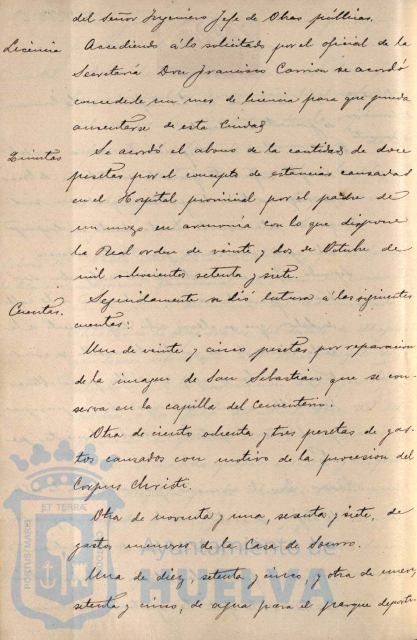 del Señor Ingeniero Jefe de Obras públicas.
Licencia Accediendo á lo solicitado por el oficial de la
Secretaría Don Francisco Carrion se acordó
concederle un mes de licencia para que pueda
ausentarse de esta Ciudad
Quintas Se acordó el abono de la cantidad de doce
pesetas por el concepto de estancias causadas
en el Hospital provincial por el padre de
un mozo en armonía con lo que dispone
la Real orden de veinte y dos de Octubre de
mil ochocientos setenta y siete.
Cuentas. Seguidamente se dió lectura á las siguientes
cuentas:
Una de veinte y cinco pesetas por reparacion
de la imagen de San Sebastian que se con-
serva en la capilla del Cementerio.
Otra de ciento ochenta y tres pesetas de gas-
tos causados con motivo de la procesion del
Corpus Christi.
Otra de noventa y una, sesenta y siete, de
gastos menores de la Casa de Socorro.
Una de diez, setenta y cinco, y otra de nueve,
setenta y cinco, de agua para el parque
ET TERRÆ
PORTUS MARIS
Ayuntamiento de
HUELVA